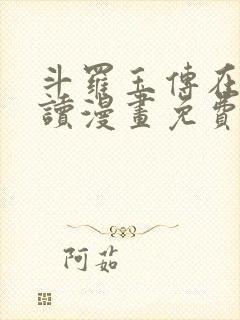 斗羅玉傳在
讀漫畫免費
阿茹